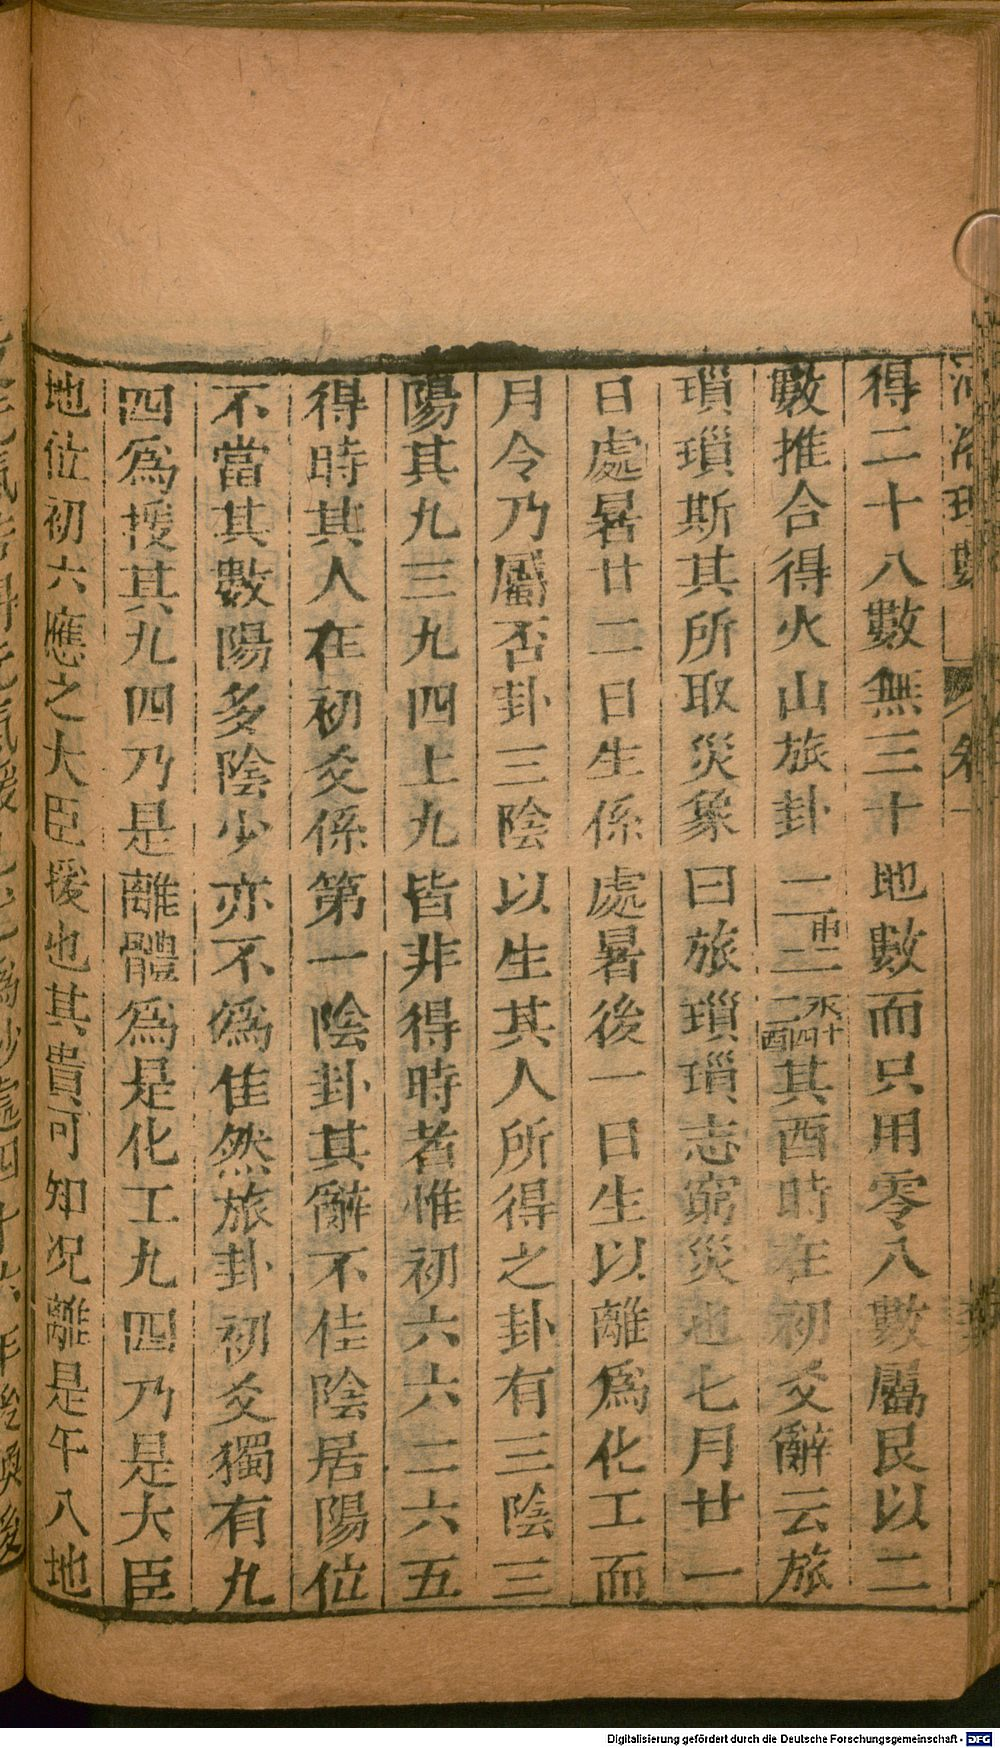 得二十八數無三十地數而只用零八數屬艮以二
數推合得火山旅卦
其酉時在初爻辭云旅
瑣瑣斯其所取災象曰旅瑣瑣志窮災也七月廿一
日處暑廿二日生係處暑後一日生以離爲化工而
月令乃屬否卦三陰以生其人所得之卦有三陰三
陽其九三九四上九皆非得時者惟初六六二六五
得時其人在初爻係第一陰卦其辭不佳陰居陽位
不當其數陽多陰少亦不爲佳然旅卦初爻獨有九
四爲援其九四乃是離體爲是化工九四乃是大臣
地位初六應之大臣援也其貴可知况離是午八地
Digitalisierung gefördert durch die Deutsche Forschungsgemeinschaft - DFG